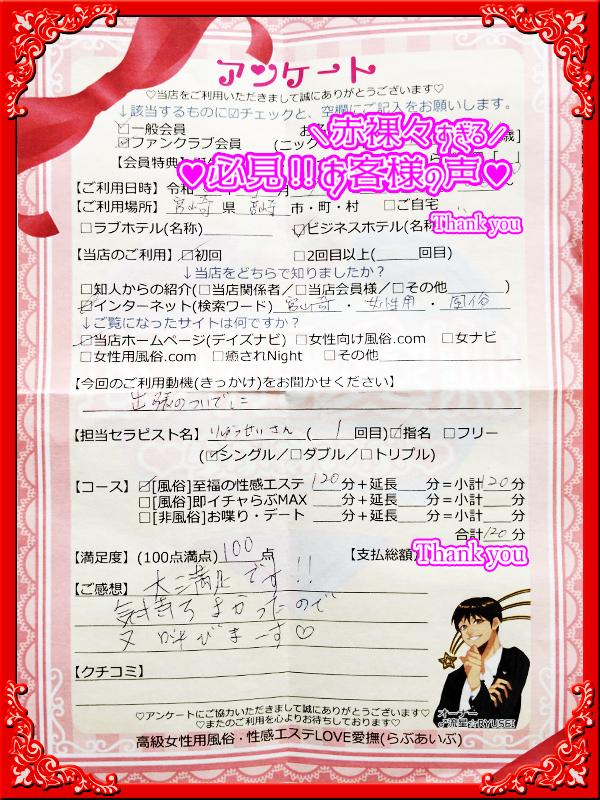 アンケート
♡当店をご利用いただきまして誠にありがとうございます♡
↓該当するものに☑チェックと、空欄にご記入をお願いします。
☑一般会員
\赤裸々すぎる/
☑ファンクラブ会員 (ニック
歳]
♡必見!!お客様の声♡
【会員特典】
【ご利用日時】令和 月
【ご利用場所】宮崎県 宮崎 市・町・村 □ご自宅
Thank you
□ラブホテル(名称) ☑ビジネスホテル(名称
【当店のご利用】☑初回 □2回目以上( 回目)
↓当店をどちらで知りましたか?
□知人からの紹介(□当店関係者/□当店会員様/□その他 )
☑インターネット(検索ワード) 宮崎・女性用・風俗
↓ご覧になったサイトは何ですか?
☑当店ホームページ(デイズナビ) □女性向け風俗.com □女ナビ
□女性用風俗.com □癒されNight □その他
【今回のご利用動機(きっかけ)をお聞かせください】
出張のついでに
【担当セラピスト名】りゅうせいさん ( 1 回目) ☑指名 □フリー
(☑シングル/□ダブル/□トリプル)
【コース】 ☑[風俗]至福の性感エステ 120分+延長 分=小計120分
□[風俗]即イチャらぶMAX 分+延長 分=小計 分
□[非風俗]お喋り・デート 分+延長 分=小計 分
合計120分
【満足度】(100点満点) 100 点 【支払総額】
Thank you
【ご感想】 大満足です!!
気持ちよかったので
又呼びまーす♡
【クチコミ】
♡アンケートにご協力いただきまして誠にありがとうございます♡
♡またのご利用を心よりお待ちしております♡
オーナー
流星☆RYUSEI
高級女性用風俗・性感エステLOVE愛撫(らぶあいぶ)